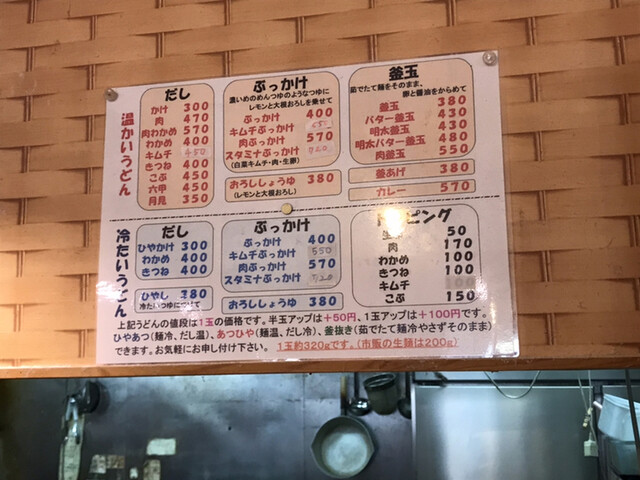 温かいうどん
だし
かけ 300
肉 470
肉わかめ 570
わかめ 400
キムチ 450
きつね 400
こぶ 450
六甲 450
月見 350
ぶっかけ
濃いめのめんつゆのようなつゆに
レモンと大根おろしを乗せて
ぶっかけ 400
キムチぶっかけ
肉ぶっかけ 570
スタミナぶっかけ 720
(白菜キムチ・肉・生卵)
おろししょうゆ 380
(レモンと大根おろし)
釜玉
茹でたて麺をそのまま、
卵と醤油をからめて
釜玉 380
バター釜玉 430
明太釜玉 430
明太バター釜玉 480
肉釜玉 550
釜あげ 380
カレー 570
冷たいうどん
だし
ひやかけ 300
わかめ 400
きつね 400
ひやし 380
冷たいつゆにつけて
ぶっかけ
ぶっかけ 400
キムチぶっかけ 550
肉ぶっかけ 570
スタミナぶっかけ 720
おろししょうゆ 380
ピング
50
肉 170
わかめ 100
きつね 100
キムチ
こぶ 150
上記うどんの値段は1玉の価格です。半玉アップは+50円、1玉アップは+100円です。
ひやあつ(麺冷、だし温)、あつひや(麺温、だし冷)、釜抜き(茹でたて麺冷やさずそのまま)
できます。お気軽にお申し付け下さい。 1玉約320gです。(市販の生麺は200g)